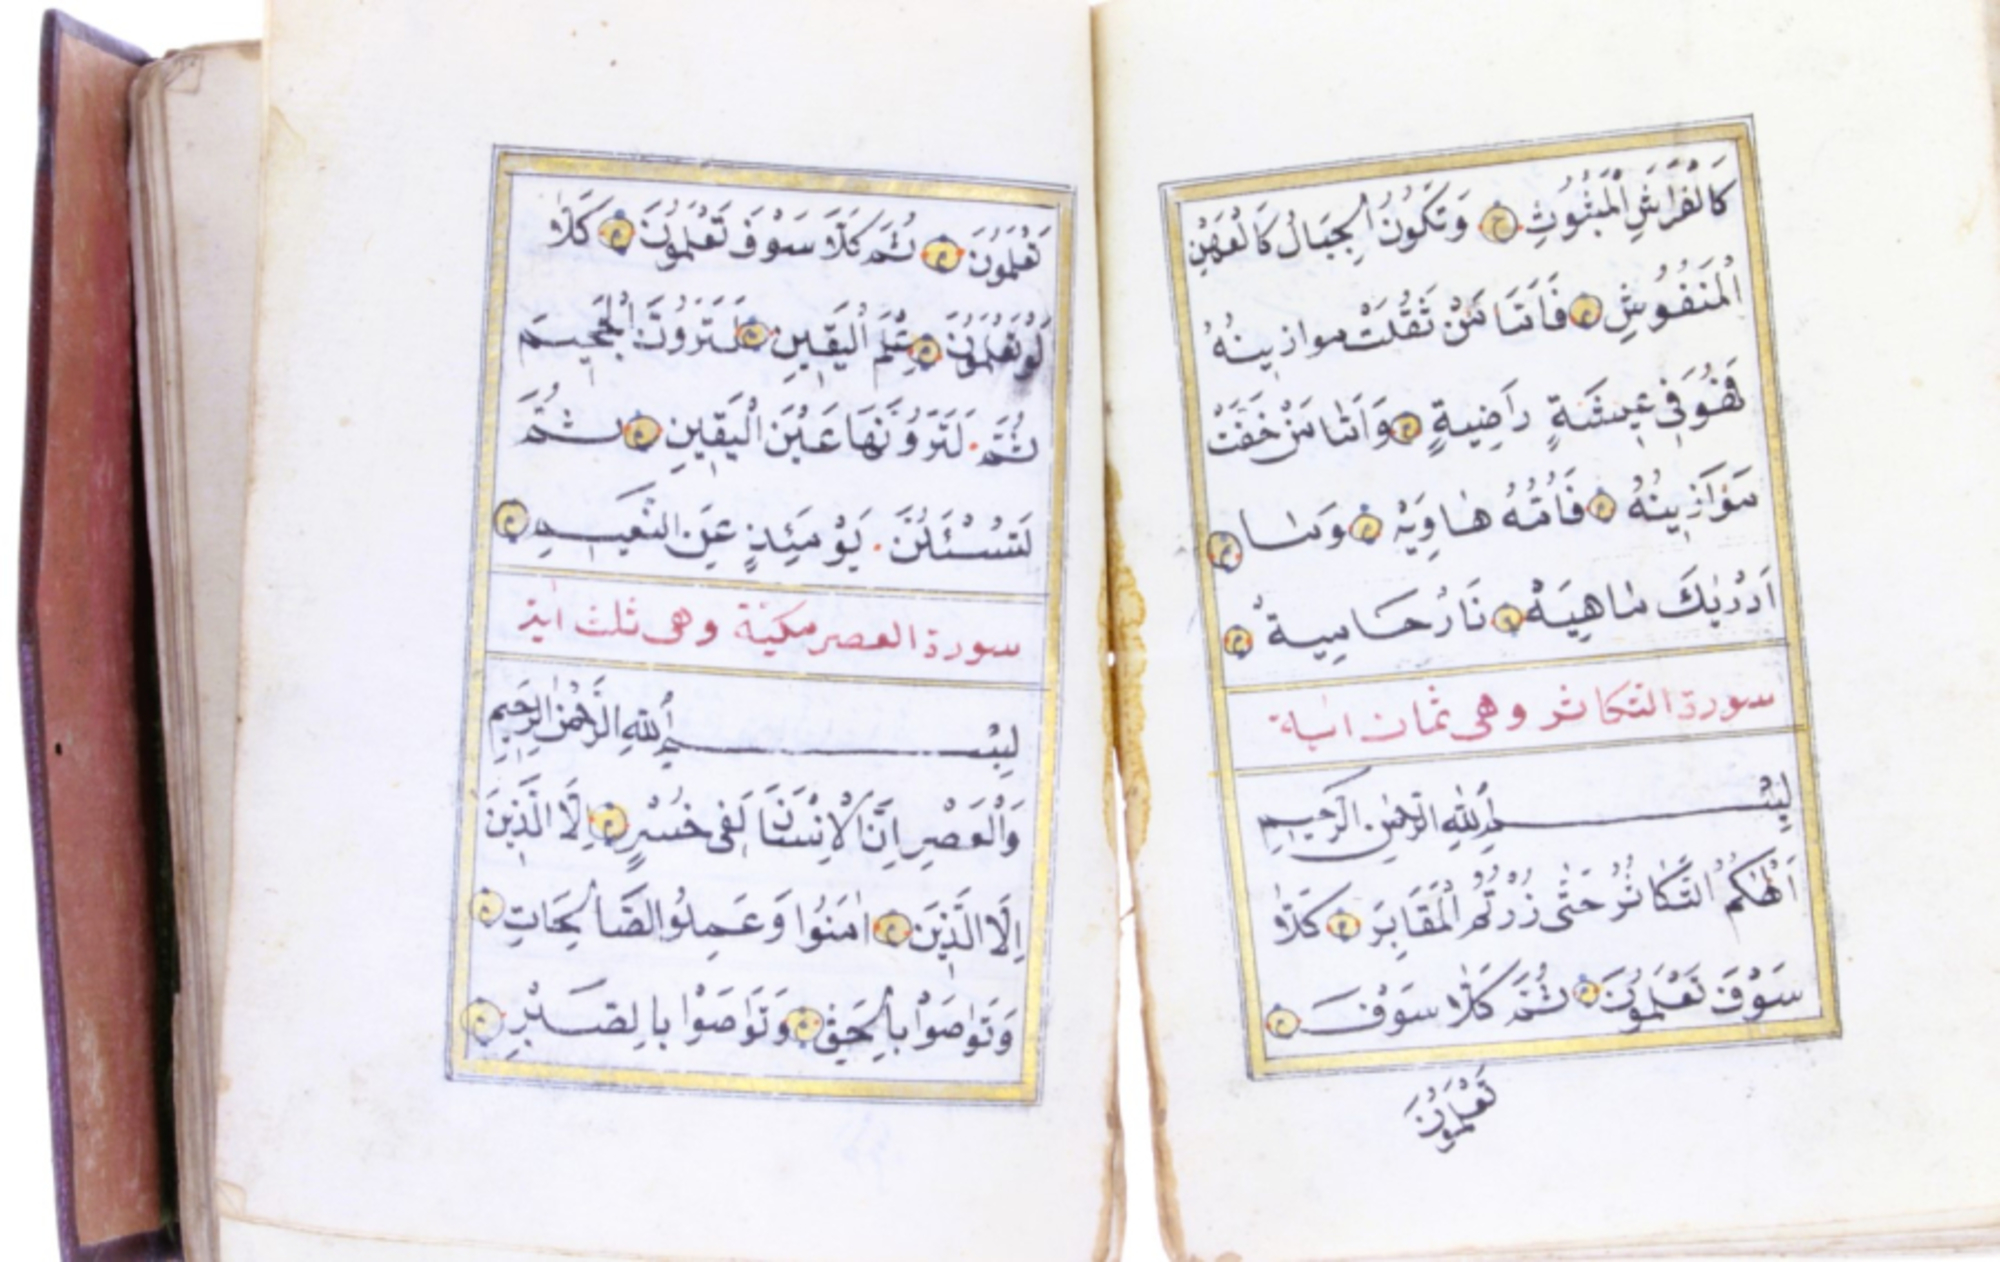 كَالْفَرَاشِ الْمَبْثُوثِ وَتَكُونُ الْجِبَالُ كَالْعِهْنِ
الْمَنْفُوشِ فَاَمَّا مَنْ ثَقُلَتْ موازينُهُ
فَهُوَ فِى عِيشَةٍ رَاضِيَةٍ وَاَمَّا مَنْ خَفَّتْ
مَوَازِينُهُ فَاُمُّهُ هَاوِيَةٌ وَمَا
اَدْرٰيكَ مَاهِيَهْ نَارٌ حَامِيَةٌ
سورة التكاثر وهى ثمان اية
بِسْمِ اللهِ الرَّحْمٰنِ الرَّحِيمِ
اَلْهٰيكُمُ التَّكَاثُرُ حَتّٰى زُرْتُمُ الْمَقَابِرَ كَلَّا
سَوْفَ تَعْلَمُونَ ثُمَّ كَلَّا سَوْفَ
تَعْلَمُونَ
تَعْلَمُونَ ثُمَّ كَلَّا سَوْفَ تَعْلَمُونَ كَلَّا
لَوْتَعْلَمُونَ عِلْمَ الْيَقِينِ لَتَرَوُنَّ الْجَحِيمَ
ثُمَّ لَتَرَوُنَّهَا عَيْنَ الْيَقِينِ ثُمَّ
لَتُسْئَلُنَّ يَوْمَئِذٍ عَنِ النَّعِيمِ
سورة العصر مكية وهى ثلث اية
بِسْمِ اللهِ الرَّحْمٰنِ الرَّحِيمِ
وَالْعَصْرِ اِنَّ الْاِنْسَانَ لَفِى خُسْرٍ اِلَّا الَّذِينَ
اِلَّا الَّذِينَ اٰمَنُوا وَعَمِلُوا الصَّالِحَاتِ
وَتَوَاصَوْا بِالْحَقِّ وَتَوَاصَوْا بِالصَّبْرِ